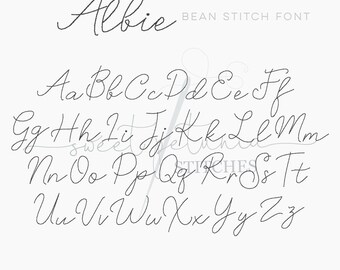 Albie BEAN STITCH FONT
Aa Bb Cc Dd Ee Ff
Gg Hh Ii Jj Kk Ll Mm
sweet petunia
STITCHES
Nn Oo Pp Qq Rr Ss Tt
Uu Vv Ww Xx Yy Zz